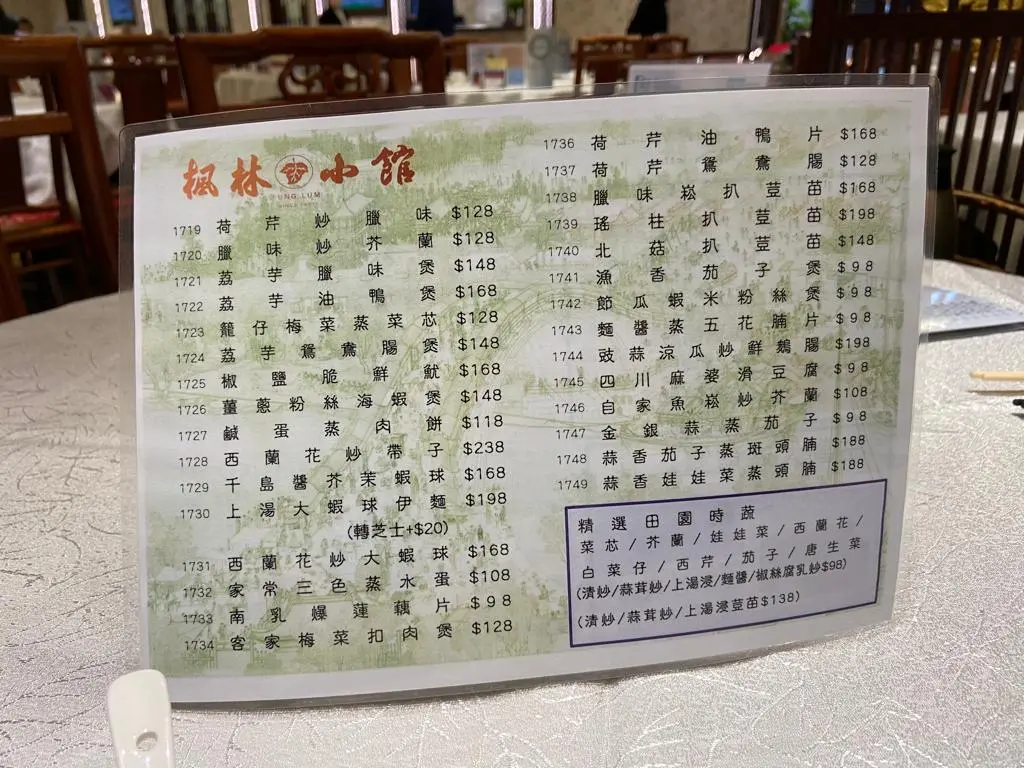 楓林小館
UNG LUM
1719 荷芹炒臘味 $128
1720 臘味炒芥蘭 $128
1721 荔芋臘味煲 $148
1722 荔芋油鴨煲 $168
1723 籠仔梅菜蒸菜芯 $128
1724 荔芋鴛鴦腸煲 $148
1725 椒鹽脆鮮魷 $168
1726 薑蔥粉絲海蝦煲 $148
1727 鹹蛋蒸肉餅 $118
1728 西蘭花炒帶子 $238
1729 千島醬芥茉蝦球 $168
1730 上湯大蝦球伊麵 $198
(轉芝士+$20)
1731 西蘭花炒大蝦球 $168
1732 家常三色蒸水蛋 $108
1733 南乳爆蓮藕片 $98
1734 客家梅菜扣肉煲 $128
1736 荷芹油鴨片 $168
1737 荷芹鴛鴦腸 $128
1738 臘味崧扒荳苗 $168
1739 瑤柱扒荳苗 $198
1740 北菇扒荳苗 $148
1741 漁香茄子煲 $98
1742 節瓜蝦米粉絲煲 $98
1743 麵醬蒸五花腩片 $98
1744 豉蒜涼瓜炒鮮鵝腸 $198
1745 四川麻婆滑豆腐 $98
1746 自家魚崧炒芥蘭 $108
1747 金銀蒜蒸茄子 $98
1748 蒜香茄子蒸斑頭腩 $188
1749 蒜香娃娃菜蒸頭腩 $188
精選田園時蔬
菜芯/芥蘭/娃娃菜/西蘭花/
白菜仔/西芹/茄子/唐生菜
(清炒/蒜茸炒/上湯浸/麵醬/椒絲腐乳炒$98)
(清炒/蒜茸炒/上湯浸荳苗$138)